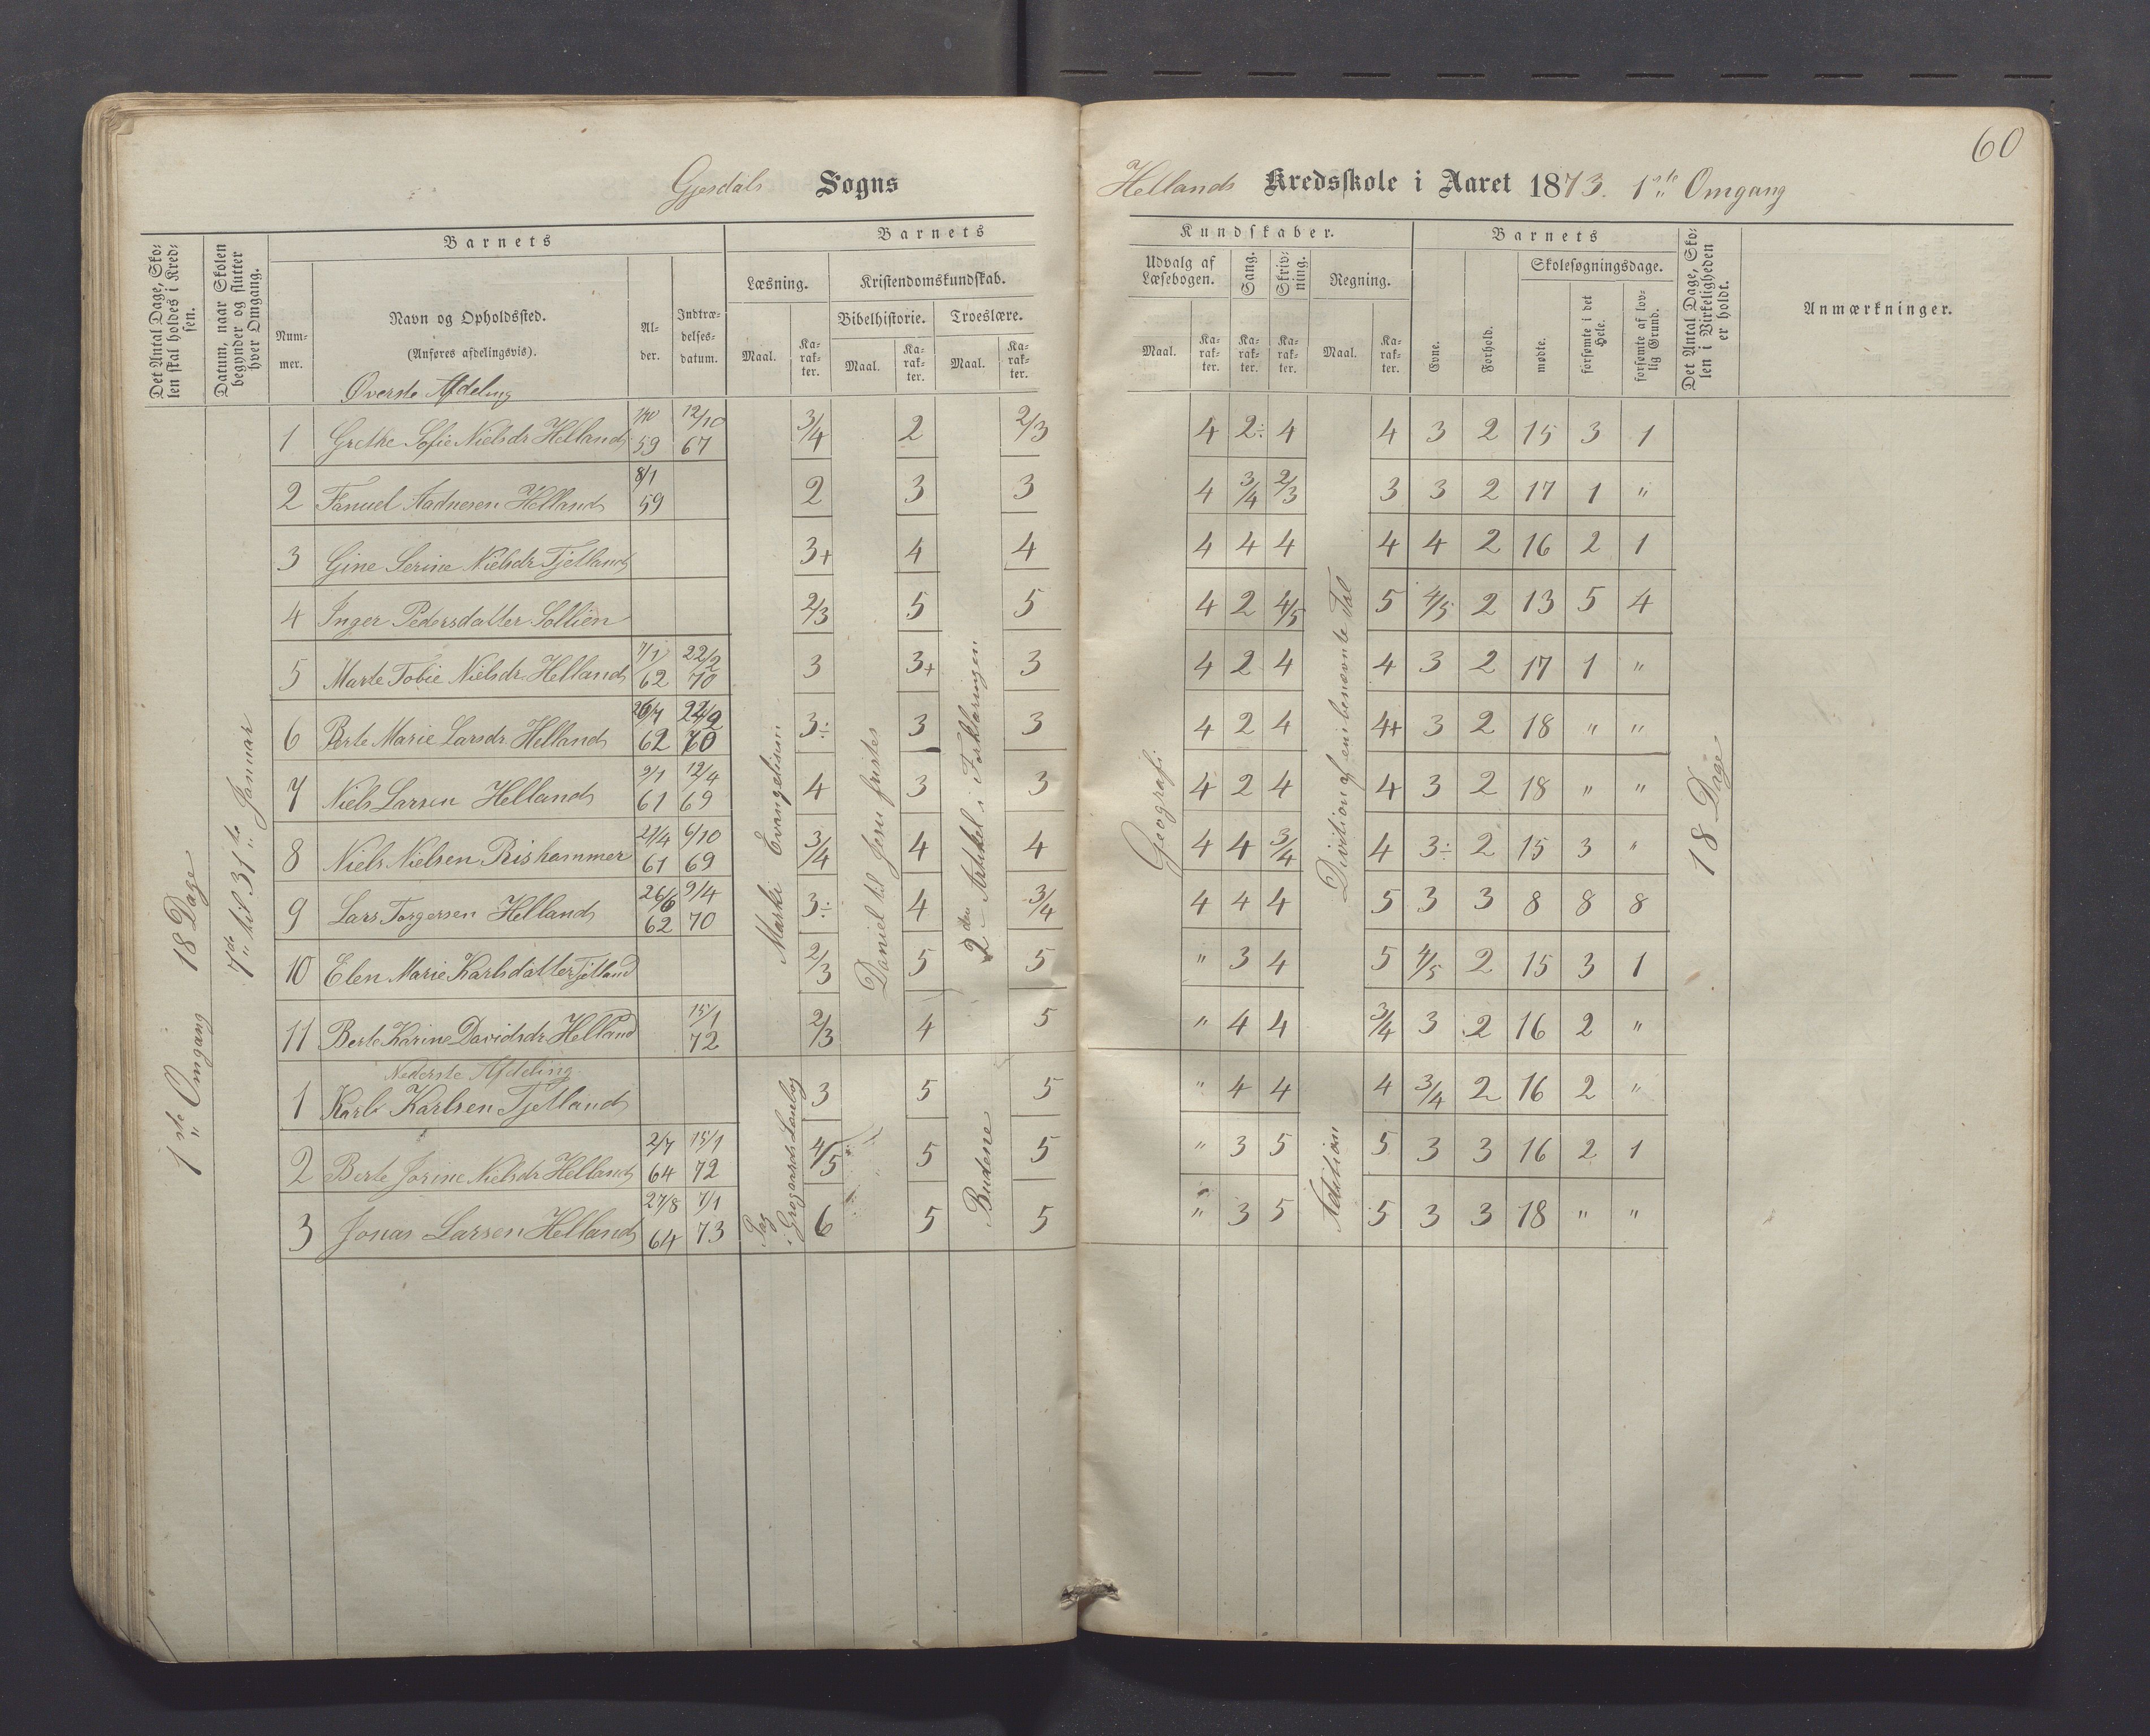 60
Gjesdals Sogns Hellands Kredsskole i Aaret 1873. 1ste Omgang
Det Antal Dage, Skolen skal holdes i Kredsen.
Datum, naar Skolen begynder og slutter hver Omgang.
Barnets
Nummer.
Navn og Opholdssted.
(Anføres afdelingsvis).
Alder.
Indtrædelsesdatum.
Barnets Kundskaber.
Læsning. Maal. Karakter.
Kristendomskundskab.
Bibelhistorie. Maal. Karakter.
Troeslære. Maal. Karakter.
Udvalg af Læsebogen. Maal. Karakter.
Sang. Karakter.
Skrivning. Karakter.
Regning. Maal. Karakter.
Barnets
Evne. Forhold.
Skolesøgningsdage.
mødte. forsømte i det Hele. forsømte af lovlig Grund.
Det Antal Dage, Skolen i Virkeligheden er holdt.
Anmærkninger.
1ste Omgang 18 Dage
7de til 31te Januar
Marki Evangelium
Daniel til Jesu fristes
2den Artikel i Forklaringen
Geografi
Division af eenbenævnte Tal
18 Dage
Øverste Afdeling
1 Grethe Sofie Nielsdr Helland 59 12/10 67 3/4 2 2/3 4 2÷ 4 4 3 2 15 3 1
2 Fanuel Aadnesen Helland 8/1 59 2 3 3 4 3/4 2/3 3 3 2 17 1 "
3 Gine Serine Nielsdr Tjetland 3+ 4 4 4 4 4 4 4 2 16 2 1
4 Inger Pedersdatter Sollien 2/3 5 5 4 2 4/5 5 4/5 2 13 5 4
5 Marte Tobie Nielsdr Helland 7/1 62 22/2 70 3 3+ 3 4 2 4 4 3 2 17 1 "
6 Berte Marie Larsdr Helland 62 70 3÷ 3 3 4 2 4 4+ 3 2 18 " "
7 Niels Larsen Helland 9/1 61 12/4 69 4 3 3 4 2 4 4 3 2 18 " "
8 Niels Nielsen Rishammer 21/4 61 6/10 69 3/4 4 4 4 4 3/4 4 3÷ 2 15 3 "
9 Lars Torgersen Helland 26/6 62 9/4 70 3÷ 4 3/4 4 4 4 5 3 3 8 8 8
10 Elen Marie Karlsdatter Tjetland 2/3 5 5 " 3 4 5 4/5 2 15 3 1
11 Berte Karine Davidsdr Helland 15/1 72 2/3 4 5 " 4 4 3/4 3 2 16 2 "
Nederste Afdeling
1 Karl Karlsen Tjetland 3 5 5 " 4 4 4 3/4 2 16 2 "
2 Berte Jorine Nielsdr Helland 2/7 64 15/1 72 4/5 5 5 " 3 5 5 3 3 16 2 1
3 Jonas Larsen Helland 27/8 64 7/1 73 6 5 5 " 3 5 5 3 3 18 " "
Budene
Adition